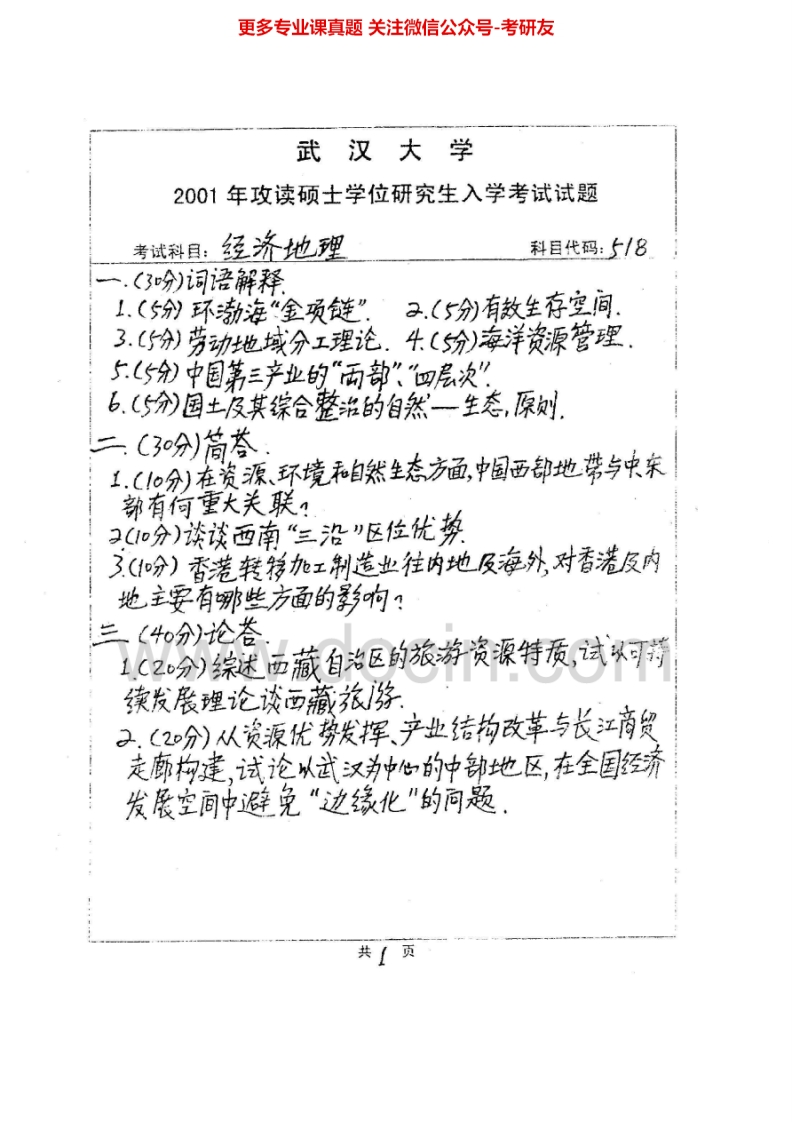 更多专业课真题 关注微信公众号-考研友
武 汉 大 学
2001 年攻读硕士学位研究生入学考试试题
考试科目: 经济地理 科目代码: 518
一.(30分)词语解释.
1.(5分)环渤海“金项链”. 2.(5分)有效生存空间.
3.(5分)劳动地域分工理论. 4.(5分)海洋资源管理.
5.(5分)中国第三产业的“两部”、“四层次”.
6.(5分)国土及其综合整治的自然—生态,原则.
二.(30分)简答.
1.(10分)在资源、环境和自然生态方面,中国西部地带与中东
部有何重大关联?
2.(10分)谈谈西南“三沿”区位优势.
3.(10分)香港转移加工制造业往内地及海外,对香港及内
地主要有哪些方面的影响?
三.(40分)论答.
1.(20分)综述西藏自治区的旅游资源特质,试以可持
续发展理论谈西藏旅游.
2.(20分)从资源优势发挥、产业结构改革与长江商贸
走廊构建,试论以武汉为中心的中部地区,在全国经济
发展空间中避免“边缘化”的问题.
共 1 页
www.docin.com